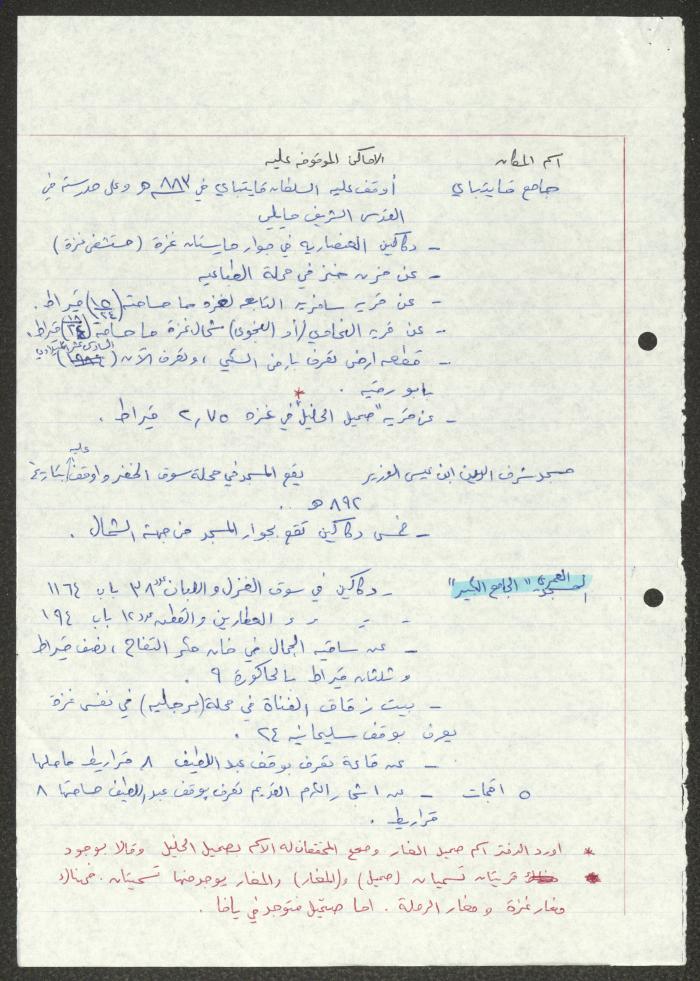 اسم المكان    الاماكن الموقوفه عليه
جامع قايتباي    أوقف عليه السلطان قايتباي في ٨٨٣ هـ وعلى مدرسته في
القدس الشريف مايلي
- دكاكين الحضاريه في جوار مارستان غزة (مستشفى غزة)
- عن فرن خبز في محلة الطباعيه
- عن قريه سافريه التابعه لغزه مما مساحته قيراط .
- عن قريه النخاسي (أو العجوي) شمال غزة ما مساحة (١٨/٢٤) قيراط .
- قطعه ارض تعرف بارض السكي ، وتعرف الآن
بابو رضيه .
- عن قريه "صميل الخليل" في غزه ٢,٧٥ قيراط . *
مسجد شرف الدين ابن عيسى الوزير    يقع المسجد في محلة سوق الخضر واوقف عليه بتاريخ
٨٩٢ هـ .
- خمس دكاكين تقع بجوار المسجد من جهة الشمال .
المسجد العمري "الجامع الكبير"    - دكاكين في سوق الغزل واللبان عدد ٣٨ باب ١١٦٤
- العطارين والقطن عدد ١٢ باب ١٩٤
- عن ساقيه الجمال في خان حكر التفاح ، نصف قيراط
و ثلثان قيراط بالحاكورة ٩ .
- بيت زقاق القناة في محلة (برجليه) في نفس غزة
يعرف بوقف سليمانيه ٢٤ .
- عن قاعة تعرف بوقف عبد اللطيف ٨ قراريط حاصلها
٥ اقجات    - عن اشجار الكرم القديم تعرف بوقف عبد اللطيف مساحتها ٨
قراريط .
* اورد الدفتر اسم صميل المغار وصحح المحققان له الاسم بصميل الخليل وقالا بوجود
* قريتان تسميان (صميل) و(المغار) والمغار يوجد منها تسميتان . فهناك
مغار غزة و مغار الرملة . اما صميل فتوجد في يافا .